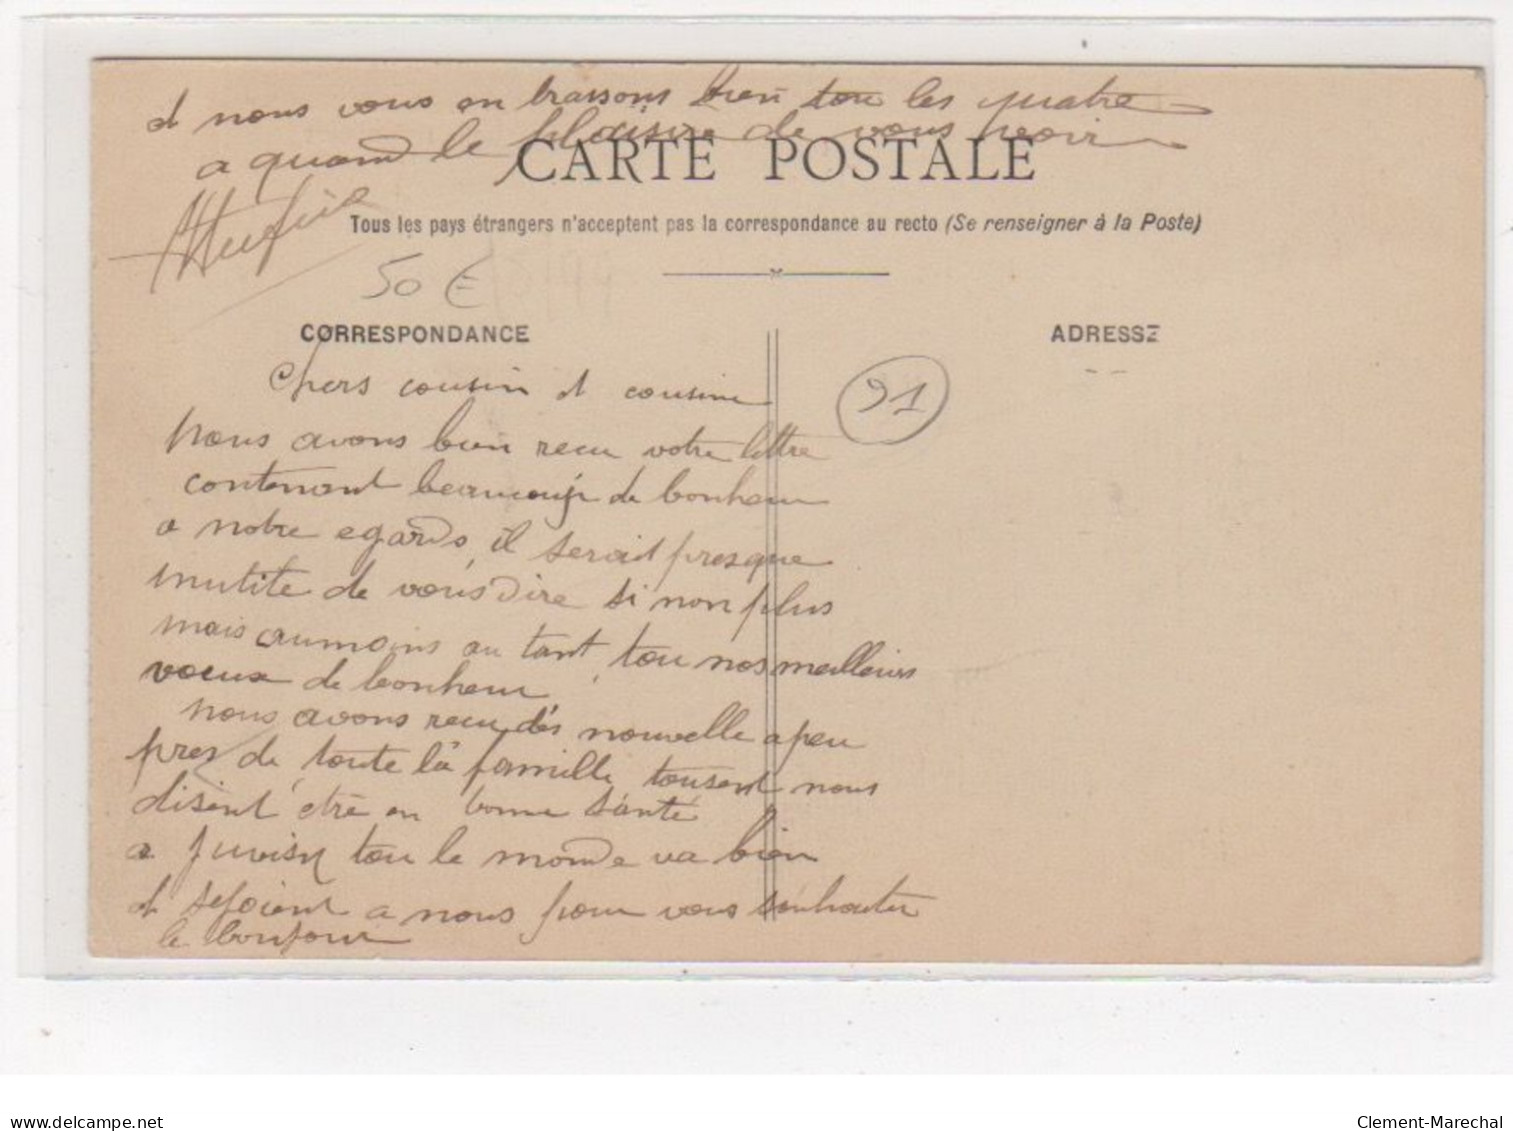 et nous vous en brassons bien tou les quatre
a quand le plaisire de vous revoir
CARTE POSTALE
Tous les pays étrangers n'acceptent pas la correspondance au recto (Se renseigner à la Poste)
50 €
CORRESPONDANCE
ADRESSE
91
Chers cousin et cousine
Nous avons bien recu votre lettre
contenant beaucoup de bonheur
a notre egards, il serait presque
inutile de vous dire si non plus
mais aumoins au tant, tou nos meilleurs
voeux de bonheur
nous avons recu dés nouvelle a peu
pres de toute la famille, tousent nous
disent étre en bonne santé
a Juvisy tou le monde va bien
et sejoient a nous pour vous souhaiter
le bonjour
www.delcampe.net
Clement-Marechal